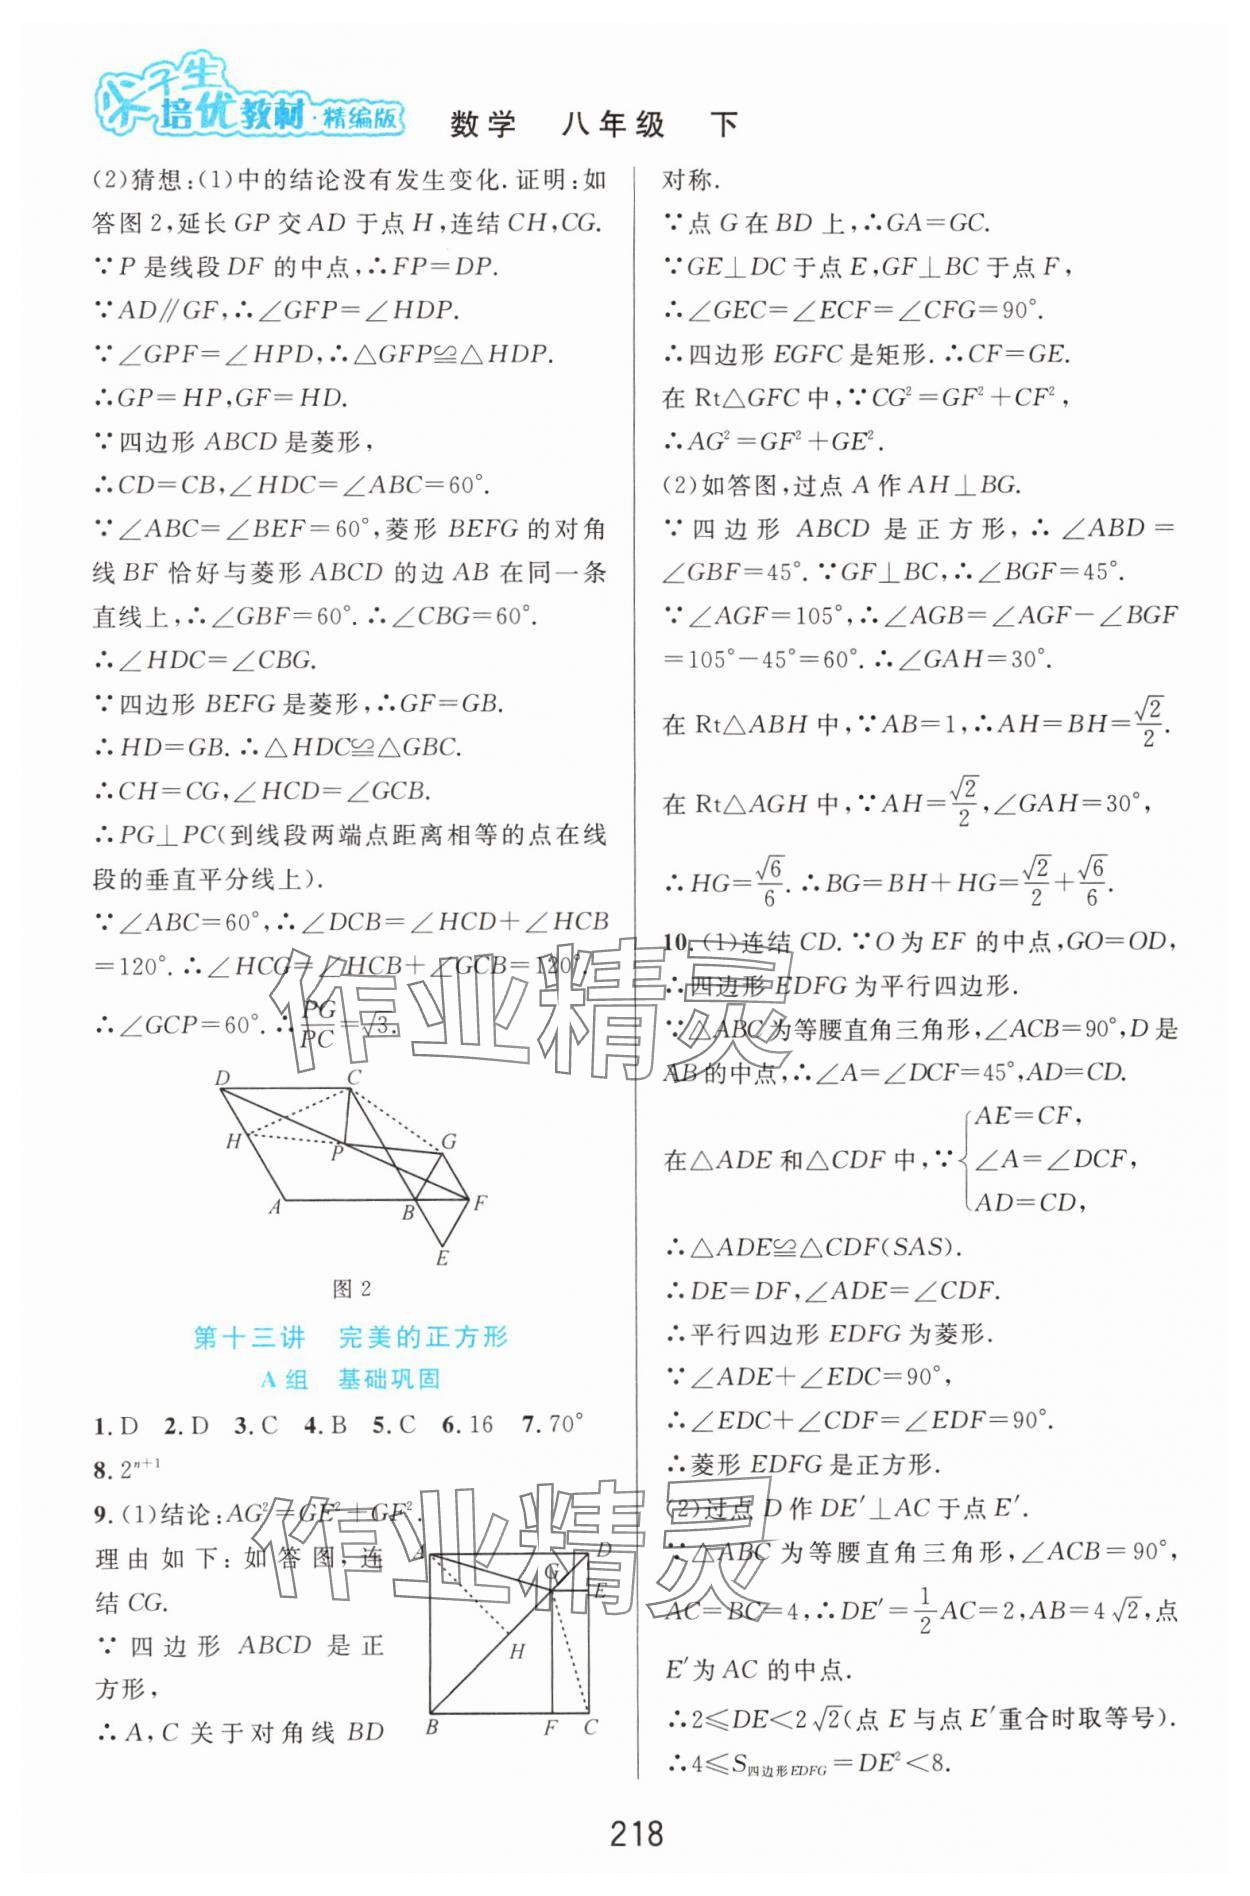 尖子生
培优教材·精编版
数学 八年级 下
(2)猜想:(1)中的结论没有发生变化.证明:如
答图2,延长GP交AD于点H,连结CH,CG.
∵P是线段DF的中点,∴FP=DP.
∵AD∥GF,∴∠GFP=∠HDP.
∵∠GPF=∠HPD,∴△GFP≌△HDP.
∴GP=HP,GF=HD.
∵四边形ABCD是菱形,
∴CD=CB,∠HDC=∠ABC=60°.
∵∠ABC=∠BEF=60°,菱形BEFG的对角
线BF恰好与菱形ABCD的边AB在同一条
直线上,∴∠GBF=60°.∴∠CBG=60°.
∴∠HDC=∠CBG.
∵四边形BEFG是菱形,∴GF=GB.
∴HD=GB.∴△HDC≌△GBC.
∴CH=CG,∠HCD=∠GCB.
∴PG⊥PC(到线段两端点距离相等的点在线
段的垂直平分线上).
∵∠ABC=60°,∴∠DCB=∠HCD+∠HCB
=120°.∴∠HCG=∠HCB+∠GCB=120°.
∴∠GCP=60°.∴PG/PC=√3.
D C
H P G
A B F
E
图2
第十三讲 完美的正方形
A组 基础巩固
1.D 2.D 3.C 4.B 5.C 6.16 7.70°
8.2ⁿ⁺¹
9.(1)结论:AG²=GE²+GF².
理由如下:如答图,连
结CG.
∵四边形ABCD是正
方形,
∴A,C关于对角线BD
A D
G E
H
B F C
对称.
∵点G在BD上,∴GA=GC.
∵GE⊥DC于点E,GF⊥BC于点F,
∴∠GEC=∠ECF=∠CFG=90°.
∴四边形EGFC是矩形.∴CF=GE.
在Rt△GFC中,∵CG²=GF²+CF²,
∴AG²=GF²+GE².
(2)如答图,过点A作AH⊥BG.
∵四边形ABCD是正方形,∴∠ABD=
∠GBF=45°.∵GF⊥BC,∴∠BGF=45°.
∵∠AGF=105°,∴∠AGB=∠AGF-∠BGF
=105°-45°=60°.∴∠GAH=30°.
在Rt△ABH中,∵AB=1,∴AH=BH=√2/2.
在Rt△AGH中,∵AH=√2/2,∠GAH=30°,
∴HG=√6/6.∴BG=BH+HG=√2/2+√6/6.
10.(1)连结CD.∵O为EF的中点,GO=OD,
∴四边形EDFG为平行四边形.
∵△ABC为等腰直角三角形,∠ACB=90°,D是
AB的中点,∴∠A=∠DCF=45°,AD=CD.
在△ADE和△CDF中,∵{AE=CF,
∠A=∠DCF,
AD=CD,
∴△ADE≌△CDF(SAS).
∴DE=DF,∠ADE=∠CDF.
∴平行四边形EDFG为菱形.
∵∠ADE+∠EDC=90°,
∴∠EDC+∠CDF=∠EDF=90°.
∴菱形EDFG是正方形.
(2)过点D作DE′⊥AC于点E′.
∵△ABC为等腰直角三角形,∠ACB=90°,
AC=BC=4,∴DE′=1/2AC=2,AB=4√2,点
E′为AC的中点.
∴2≤DE<2√2(点E与点E′重合时取等号).
∴4≤S四边形EDFG=DE²<8.
218
作业精灵
作业精灵